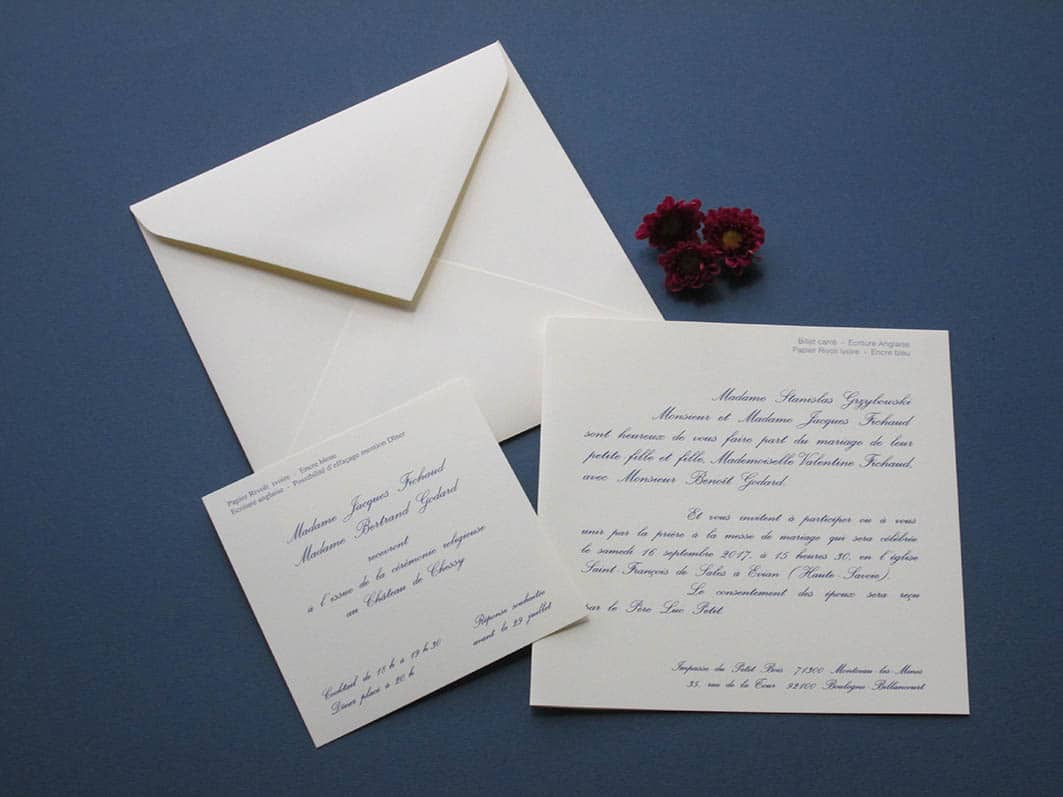 Billet carré - Ecriture Anglaise
Papier Rivoli ivoire - Encre bleu
Madame Stanislas Grzybowski
Monsieur et Madame Jacques Frchaud
sont heureux de vous faire part du mariage de leur
petite fille et fille, Mademoiselle Valentine Frchaud,
avec Monsieur Benoît Godard.
Et vous invitent à participer ou à vous
unir par la prière à la messe de mariage qui sera célébrée
le samedi 16 septembre 2017, à 15 heures 30, en l'église
Saint François de Sales à Evian (Haute-Savoie).
Le consentement des époux sera reçu
par le Père Luc Petit.
Impasse du Petit Bois 71300 Montceau-les-Mines
35, rue de la Tour 92100 Boulogne-Billancourt
Papier Rivoli ivoire - Encre bleue
Ecriture anglaise - Possibilité d'effaçage mention Dîner
Madame Jacques Frchaud
Madame Bertrand Godard
recevront
à l'issue de la cérémonie religieuse
au Château de Chessy
Réponse souhaitée
avant le 29 juillet
Cocktail de 18 h à 19 h 30
Dîner placé à 20 h